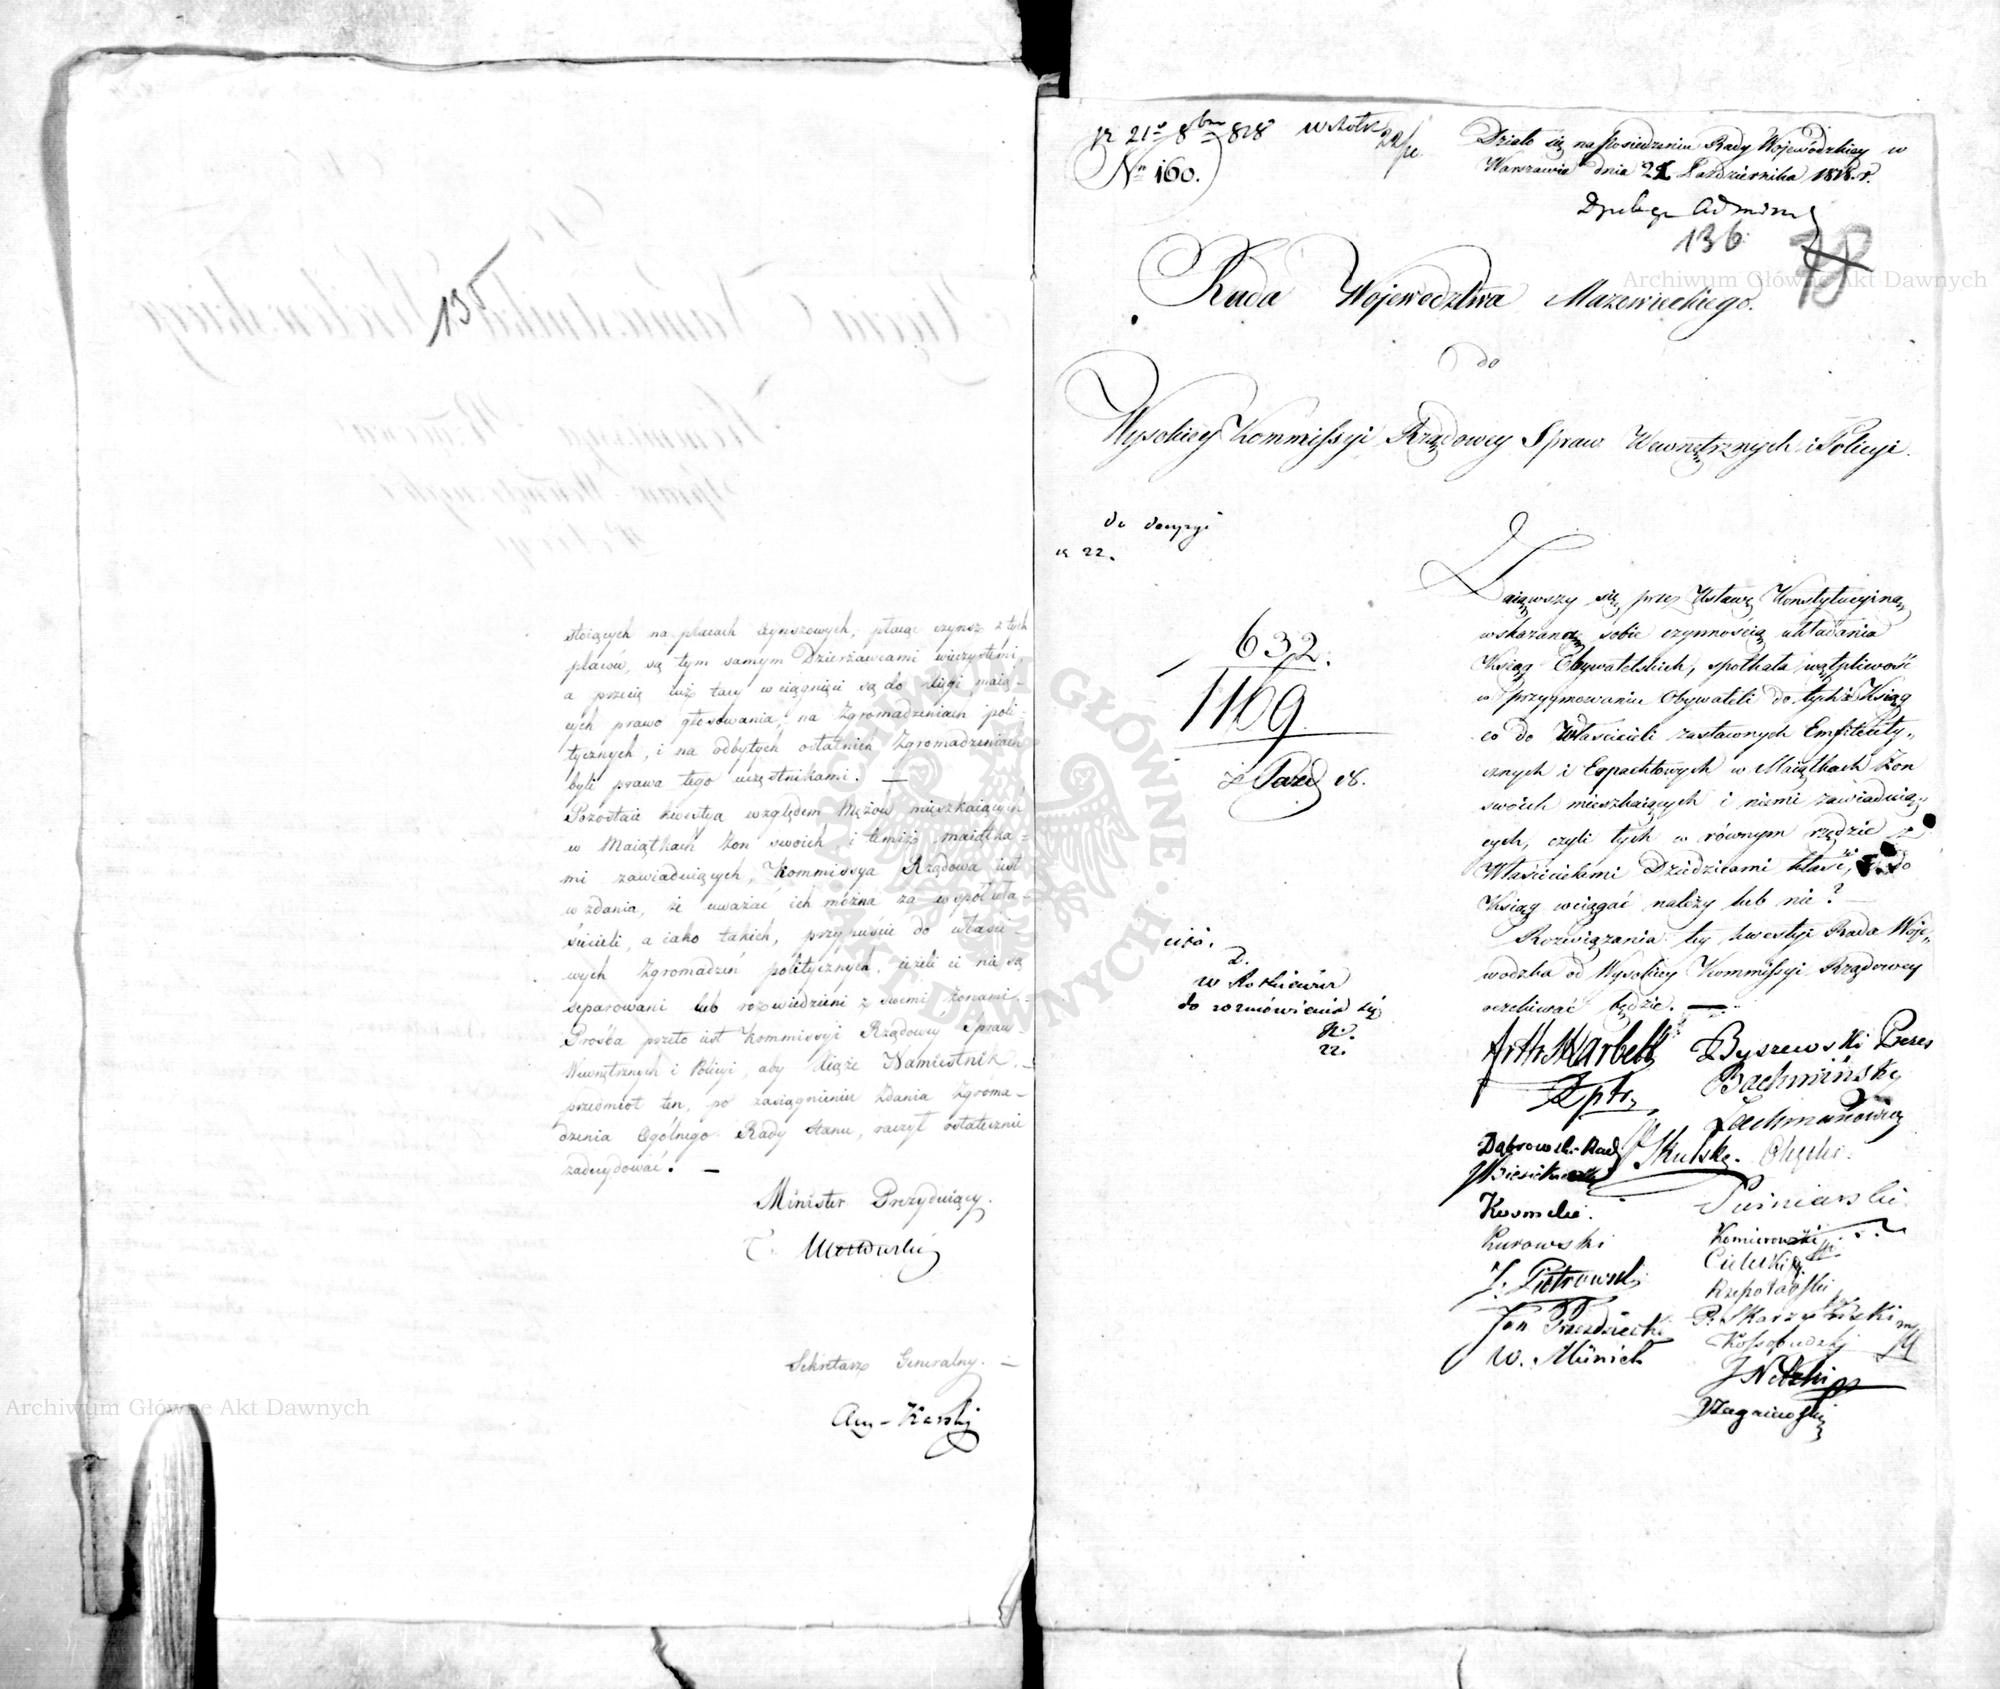 135
stoiących na placach czynszowych, płacąc czynsz z tych
placów, są tym samym Dzierżawcami wieczystemi,
a przecię iuż tacy wciągnięci są do xięgi maią-
cych prawo głosowania, na Zgromadzeniach poli-
tycznych, i na odbytych ostatnich Zgromadzeniach
byli prawa tego uczęstnikami. —
Pozostaie kwestya względem Mężów mieszkaiących
w Maiątkach żon swoich i temiż maiątka-
mi zawiaduiących, Kommissya Rządowa iest
w zdania, że uważać ich można za współwła-
ścicieli, a iako takich, przypuścić do właści-
wych Zgromadzeń politycznych, ieżeli ci nie są
separowani lub rozwiedzieni z swemi żonami. -
Prośba przeto iest Kommissyi Rządowey Spraw
Wewnętrznych i Policyi, aby Xiąże Namiestnik
przedmiot ten, po zasiągnieniu Zdania Zgroma-
dzenia Ogólnego Rady Stanu, raczył ostatecznie
zadecydować. —
Minister Prezyduiący.
Sekretarz Generalny. —
Aug. Karski
pr 21º 8bra 818
Nº 160.
Działo się na Posiedzeniu Rady Wojewodzkiey w
Warszawie dnia 21 Października 1818. r.
136
78
Rada Wojewodztwa Mazowieckiego.
do
Wysokiey Kommissyi Rządowey Spraw Wewnętrznych i Policyi.
do decyzyi
22.
632.
1169.
z Pazd 18.
Zaiąwszy się przez Ustawę Konstytucyiną
wskazaną sobie czynnością układania
Xiąg Obywatelskich, spotkała wątpliwość
w przyymowaniu Obywateli do tychże Xiąg
co do Właścicieli zastawnych Emfiteuty„
cznych i Expachtowych w Maiątkach Żon
swoich mieszkaiących i niemi zawiaduią„
cych, czyli tych w równym rzędzie z
Właścicielami Dziedzicami kłaść, i do
Xiąg wciągać należy lub nie? —
Rozwiązania tey kwestyi Rada Woje„
wodzka od Wysokiey Kommissyi Rządowey
oczekiwać będzie. —
do rozmówienia się
22.
Byszewski Prezes
Lachmanowicz
Dąbrowski Rad
Skulski.
Kurowski
Komierowski
J. Piotrowski
Cielecki
P. Skarzyński
W. Münich
Archiwum Główne Akt Dawnych
Archiwum Główne Akt Dawnych
ARCHIWUM GŁÓWNE AKT DAWNYCH